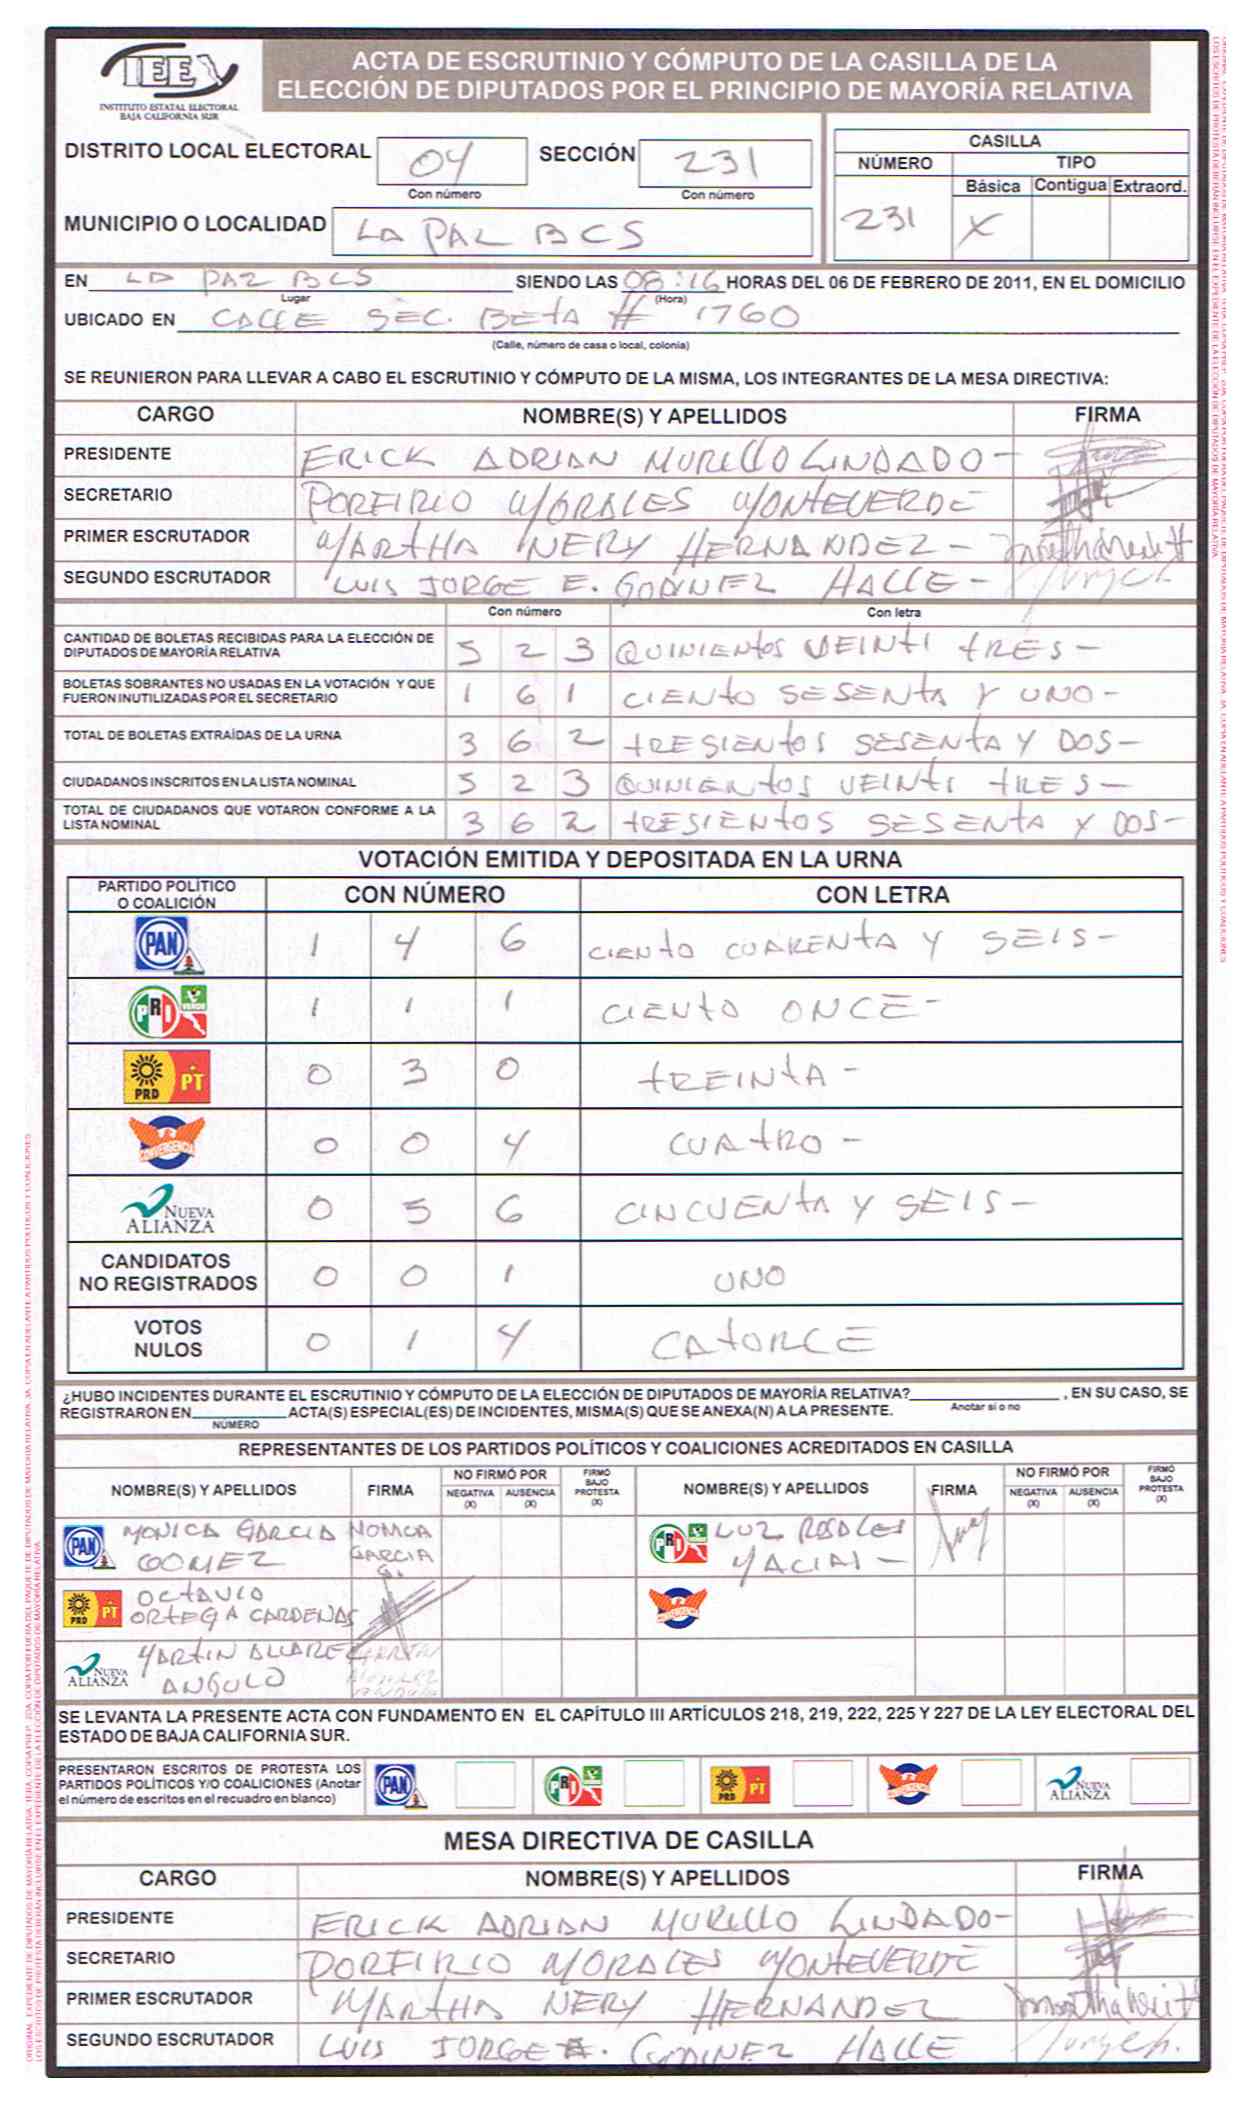 IEE
INSTITUTO ESTATAL ELECTORAL
BAJA CALIFORNIA SUR
ACTA DE ESCRUTINIO Y CÓMPUTO DE LA CASILLA DE LA
ELECCIÓN DE DIPUTADOS POR EL PRINCIPIO DE MAYORÍA RELATIVA
DISTRITO LOCAL ELECTORAL 04 SECCIÓN 231
Con número Con número
MUNICIPIO O LOCALIDAD LA PAZ BCS
CASILLA
NÚMERO TIPO
Básica Contigua Extraord.
231 X
EN LA PAZ BCS SIENDO LAS 08:16 HORAS DEL 06 DE FEBRERO DE 2011, EN EL DOMICILIO
Lugar (Hora)
UBICADO EN CALLE SEC. BETA # 1760
(Calle, número de casa o local, colonia)
SE REUNIERON PARA LLEVAR A CABO EL ESCRUTINIO Y CÓMPUTO DE LA MISMA, LOS INTEGRANTES DE LA MESA DIRECTIVA:
CARGO NOMBRE(S) Y APELLIDOS FIRMA
PRESIDENTE ERICK ADRIAN MURILLO LINDADO-
SECRETARIO PORFIRIO MORALES MONTEVERDE
PRIMER ESCRUTADOR MARTHA NERY HERNANDEZ-
SEGUNDO ESCRUTADOR LUIS JORGE E. GODINEZ HALLE-
Con número Con letra
CANTIDAD DE BOLETAS RECIBIDAS PARA LA ELECCIÓN DE
DIPUTADOS DE MAYORÍA RELATIVA 5 2 3 QUINIENTOS VEINTI TRES-
BOLETAS SOBRANTES NO USADAS EN LA VOTACIÓN Y QUE
FUERON INUTILIZADAS POR EL SECRETARIO 1 6 1 CIENTO SESENTA Y UNO-
TOTAL DE BOLETAS EXTRAÍDAS DE LA URNA 3 6 2 TRESIENTOS SESENTA Y DOS-
CIUDADANOS INSCRITOS EN LA LISTA NOMINAL 5 2 3 QUINIENTOS VEINTI TRES-
TOTAL DE CIUDADANOS QUE VOTARON CONFORME A LA
LISTA NOMINAL 3 6 2 TRESIENTOS SESENTA Y DOS-
VOTACIÓN EMITIDA Y DEPOSITADA EN LA URNA
PARTIDO POLÍTICO
O COALICIÓN CON NÚMERO CON LETRA
PAN 1 4 6 CIENTO CUARENTA Y SEIS-
PRI VERDE 1 1 1 CIENTO ONCE-
PRD PT 0 3 0 TREINTA-
CONVERGENCIA 0 0 4 CUATRO-
NUEVA ALIANZA 0 5 6 CINCUENTA Y SEIS-
CANDIDATOS
NO REGISTRADOS 0 0 1 UNO
VOTOS
NULOS 0 1 4 CATORCE
¿HUBO INCIDENTES DURANTE EL ESCRUTINIO Y CÓMPUTO DE LA ELECCIÓN DE DIPUTADOS DE MAYORÍA RELATIVA? , EN SU CASO, SE
Anotar si o no
REGISTRARON EN ACTA(S) ESPECIAL(ES) DE INCIDENTES, MISMA(S) QUE SE ANEXA(N) A LA PRESENTE.
NÚMERO
REPRESENTANTES DE LOS PARTIDOS POLÍTICOS Y COALICIONES ACREDITADOS EN CASILLA
NOMBRE(S) Y APELLIDOS FIRMA NO FIRMÓ POR NEGATIVA (X) AUSENCIA (X) FIRMÓ BAJO PROTESTA (X) NOMBRE(S) Y APELLIDOS FIRMA NO FIRMÓ POR NEGATIVA (X) AUSENCIA (X) FIRMÓ BAJO PROTESTA (X)
PAN MONICA GARCIA GOMEZ MONICA GARCIA G. PRI VERDE LUZ ROSALES
PRD PT OCTAVIO ORTEGA CARDENAS CONVERGENCIA
NUEVA ALIANZA MARTIN ALVAREZ ANGULO
SE LEVANTA LA PRESENTE ACTA CON FUNDAMENTO EN EL CAPÍTULO III ARTÍCULOS 218, 219, 222, 225 Y 227 DE LA LEY ELECTORAL DEL
ESTADO DE BAJA CALIFORNIA SUR.
PRESENTARON ESCRITOS DE PROTESTA LOS
PARTIDOS POLÍTICOS Y/O COALICIONES (Anotar
el número de escritos en el recuadro en blanco)
PAN PRI VERDE PRD PT CONVERGENCIA NUEVA ALIANZA
MESA DIRECTIVA DE CASILLA
CARGO NOMBRE(S) Y APELLIDOS FIRMA
PRESIDENTE ERICK ADRIAN MURILLO LINDADO-
SECRETARIO PORFIRIO MORALES MONTEVERDE
PRIMER ESCRUTADOR MARTHA NERY HERNANDEZ
SEGUNDO ESCRUTADOR LUIS JORGE E. GODINEZ HALLE